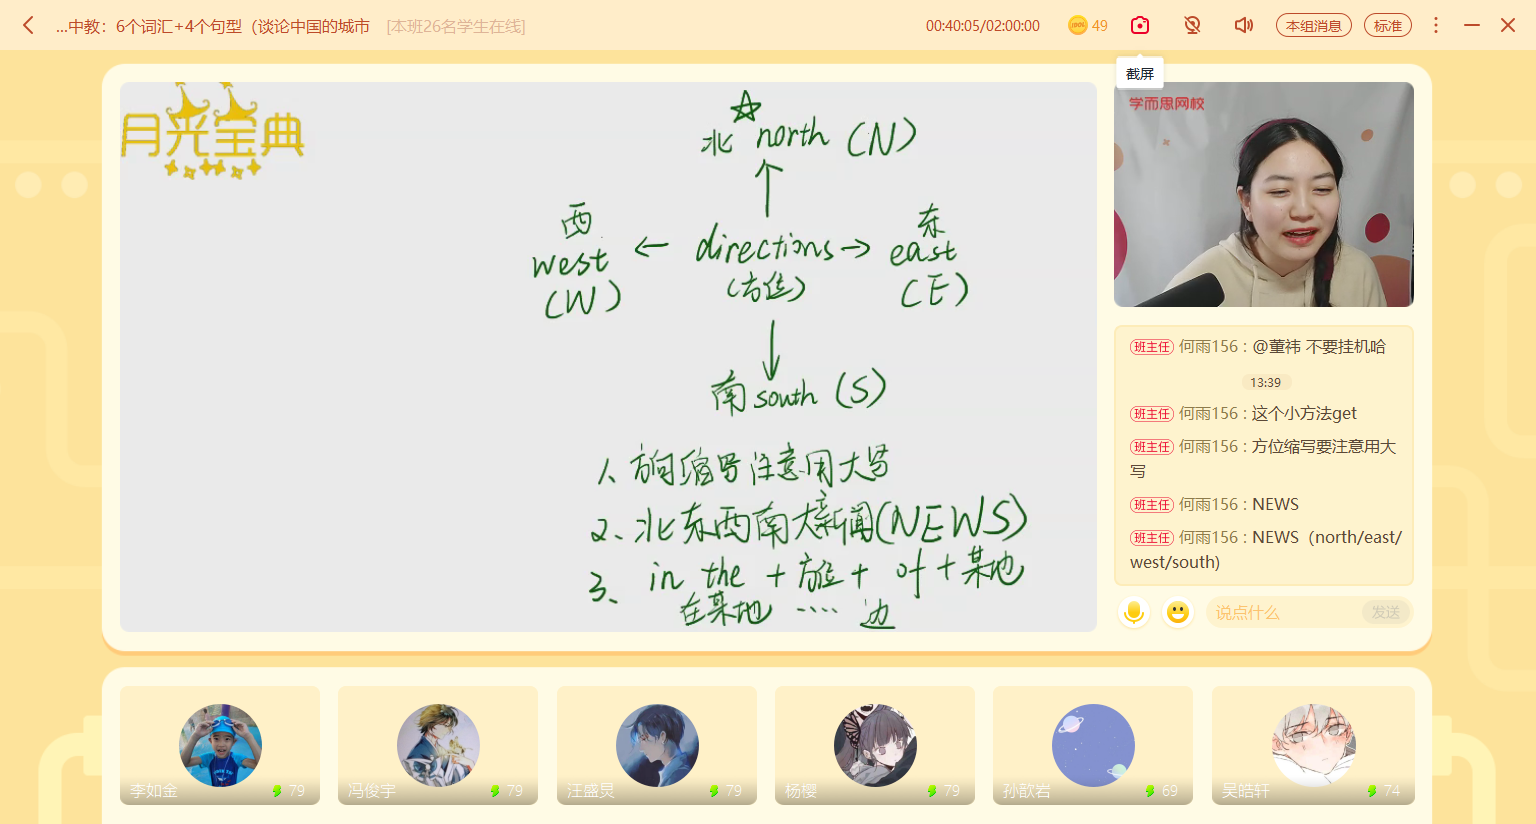 ...中教：6个词汇+4个句型（谈论中国的城市 [本班26名学生在线] 00:40:05/02:00:00 49 本组消息 标准
截屏
月光宝典
学而思网校
北 north (N)
西
west
(W)
directions
(方位)
东
east
(E)
南 south (S)
1、方向缩写注意用大写
2、北东西南大新闻(NEWS)
3、in the + 方位 + of + 某地
在某地 ···· 边
班主任 何雨156：@董祎 不要挂机哈
13:39
班主任 何雨156：这个小方法get
班主任 何雨156：方位缩写要注意用大
写
班主任 何雨156：NEWS
班主任 何雨156：NEWS（north/east/
west/south)
说点什么 发送
李如金 79
冯俊宇 79
汪盛炅 79
杨樱 79
孙歆岩 69
吴皓轩 74